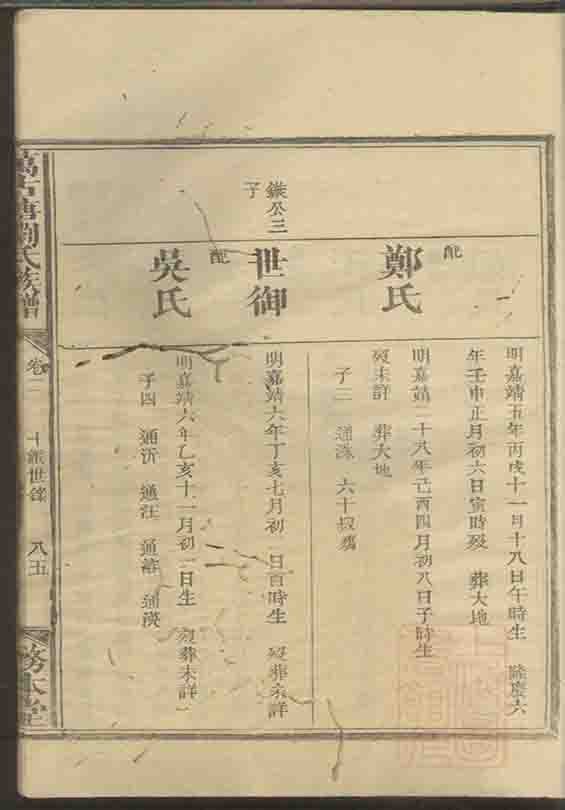 明嘉靖五年丙戌十一月十八日午時生 隆慶六
年壬申正月初六日寅時歿 葬大地
配
鄭氏
明嘉靖二十八年己酉四月初八日子時生
歿未詳 葬大地
子二 通洙 六十叔嗣
鏇公三
子
世御
明嘉靖六年丁亥七月初一日酉時生 歿葬未詳
配
吳氏
明嘉靖六年乙亥十一月初一日生 歿葬未詳
子四 通沂 通汪 通 通漢
萬古塘劉氏族譜
卷二
世錄
八五
務本堂